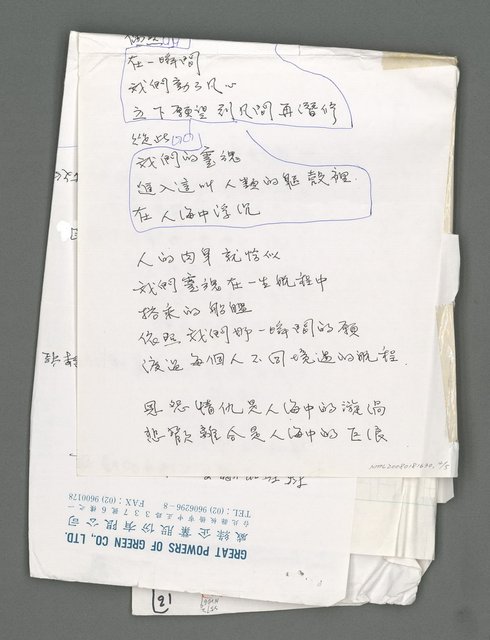 在一瞬間
我們動了凡心
立下願望到凡間再潛修
從此
我們的靈魂
進入這叫人類的軀殼裡
在人海中浮沉
人的肉身就恰似
我們靈魂在一生航程中
搭乘的船艦
依照我們那一瞬間的願
渡過每個人不同境遇的航程
恩怨情仇是人海中的漩渦
悲歡離合是人海中的巨浪
NMTL20080181690, 4/5
GREAT POWERS OF GREEN CO., LTD.
威綠企業股份有限公司
TEL：(02) 9606296-8　FAX：(02) 9600178